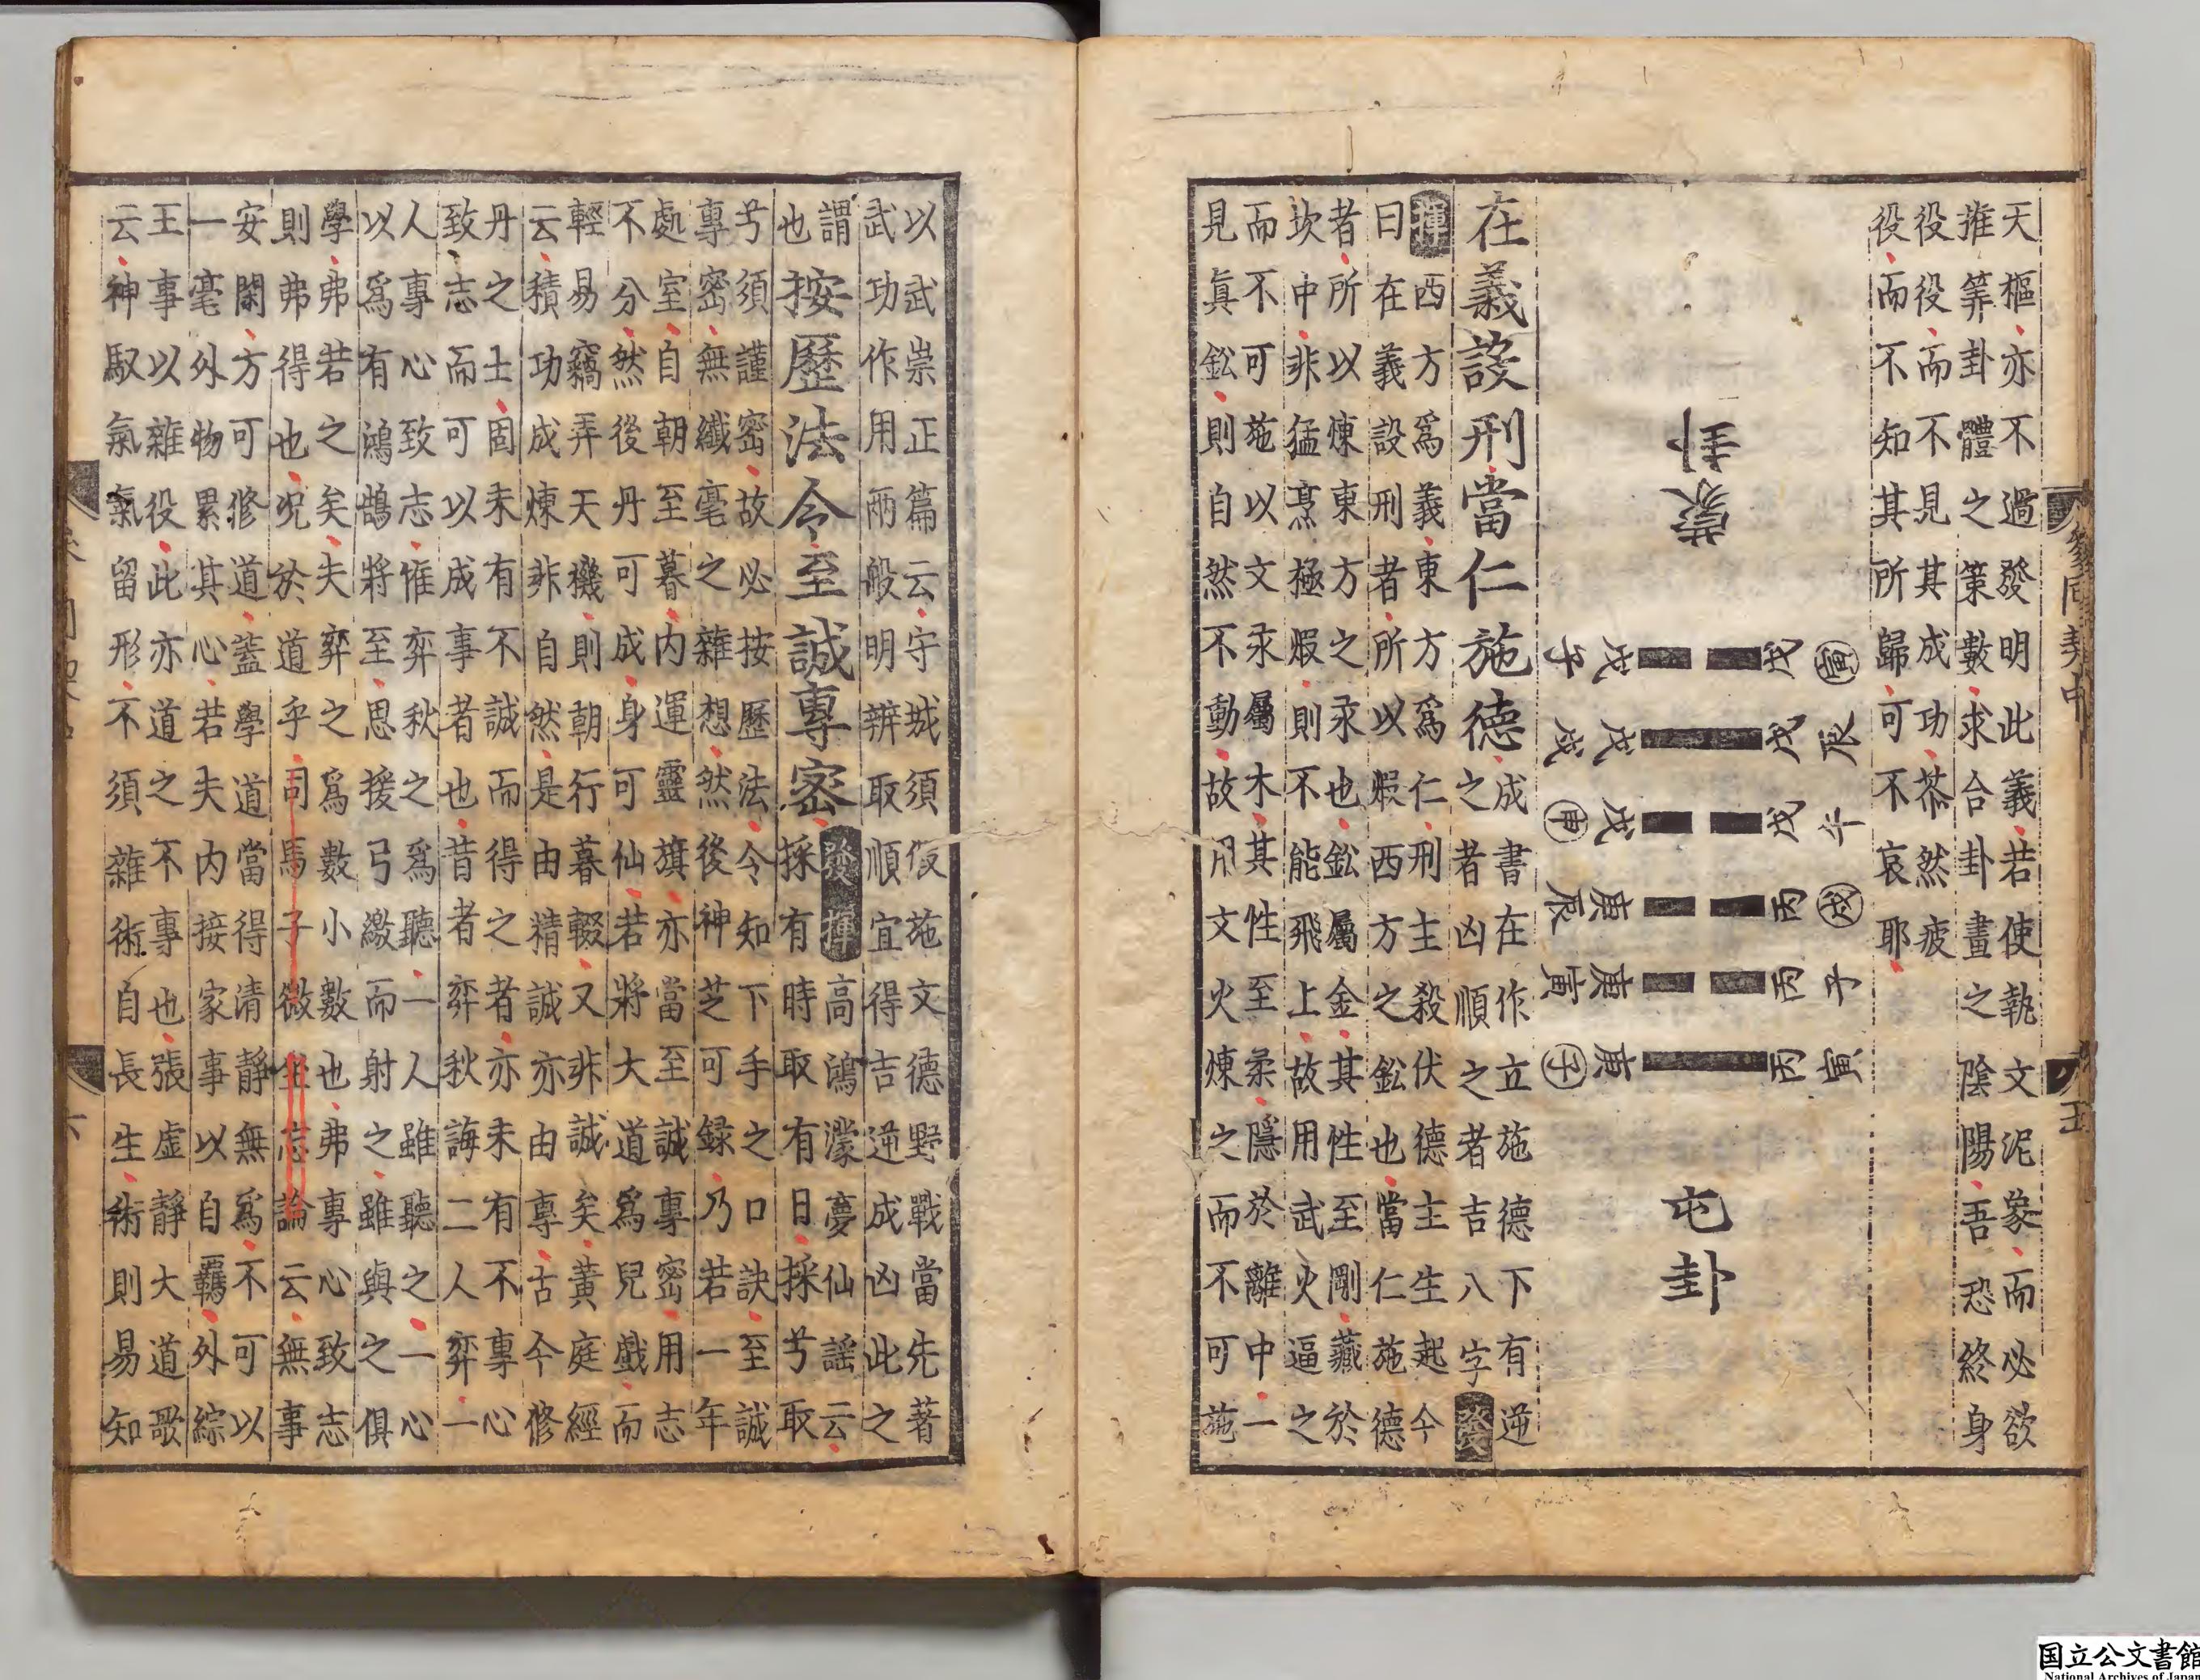 天樞亦不過發明此義若使執文泥象而必欲
推筭卦體之策數求合卦畫之陰陽吾恐終身
役役而不見其成功苶然疲
役而不知其所歸可不哀耶
寅辰午戌子寅
戊戊戊丙丙丙
蒙卦
屯卦
戊戊戊庚庚庚
子戌申辰寅子
在義設刑當仁施德
成書在作立施德下有逆
之者凶順之者吉八字 發
揮 西方爲義東方爲仁刑主殺伏德主生起今
曰在義設刑者所以煅西方之鈆也當仁施德
者所以煉東方之汞也鈆屬金其性至剛藏於
坎中非猛烹極煅則不能飛上故用武火逼之
而不可施以文汞屬木其性至柔隱於離中一
見眞鈆則自然不動故用文火煉之而不可施
參同契中
五
以武崇正篇云守城須假施文德野戰當先著
武功作用兩般明辨取順宜得吉逆成凶此之
謂
也
按歷法令至誠專密
發揮 高鴻濛夢仙謡云
採有時取有日採兮取
兮須謹密故必按歷法令知下手之口訣至誠
專密無纖毫之雜想然後神芝可録乃若一年
處室自朝至暮内運靈旗亦當至誠專密用志
不分然後丹可成身可仙若將大道爲兒戲而
輕易竊弄天機則朝行暮輟又非誠矣黃庭經
云積功成煉非自然是由精誠亦由專古今修
丹之士固未有不誠而得之者亦未有不專心
致志而可以成事者也昔者弈秋誨二人弈一
人專心致志惟弈秋之爲聽一人雖聽之一心
以爲有鴻鵠將至思援弓繳而射之雖與之俱
學弗若之矣夫弈之爲數小數也弗專心致志
則弗得也况於道乎司馬子微坐忘論云無事
安閑方可修道蓋學道當得清静無爲不可以
一毫外物累其心若夫内接家事以自羈外綜
王事以雜役此亦道之不專也張虛靜大道歌
云神馭氣氣留形不須雜術自長生術則易知
六
国立公文書館
National Archives of Japan